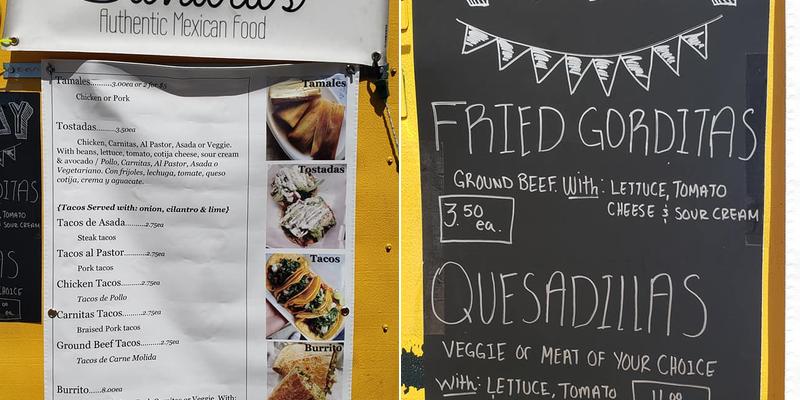 Authentic Mexican Food
Tamales..........3.00ea or 2 for $5
Chicken or Pork
Tostadas........3.50ea
Chicken, Carnitas, Al Pastor, Asada or Veggie.
With beans, lettuce, tomato, cotija cheese, sour cream
& avocado / Pollo, Carnitas, Al Pastor, Asada o
Vegetariano. Con frijoles, lechuga, tomate, queso
cotija, crema y aguacate.
{Tacos Served with: onion, cilantro & lime}
Tacos de Asada..........2.75ea
Steak tacos
Tacos al Pastor..........2.75ea
Pork tacos
Chicken Tacos..........2.75ea
Tacos de Pollo
Carnitas Tacos..........2.75ea
Braised Pork tacos
Ground Beef Tacos..........2.75ea
Tacos de Carne Molida
Burrito......8.00ea
Tamales
Tostadas
Tacos
Burrito
FRIED GORDITAS
GROUND BEEF. With: LETTUCE, TOMATO
CHEESE & SOUR CREAM
3.50 ea.
QUESADILLAS
VEGGIE OR MEAT OF YOUR CHOICE
With: LETTUCE, TOMATO